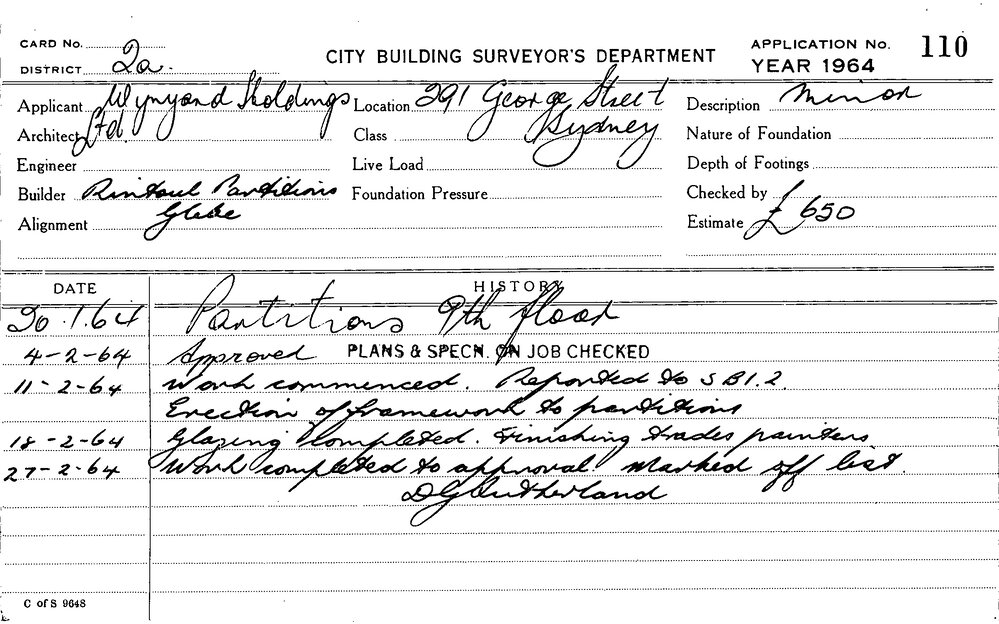 CARD No.
DISTRICT 2a.
CITY BUILDING SURVEYOR'S DEPARTMENT
APPLICATION No. 110
YEAR 1964
Applicant Wynyard Holdings
Architect Ltd.
Engineer
Builder Rintoul Partitions
Glebe
Alignment
Location 291 George Street
Sydney
Class
Live Load
Foundation Pressure
Description Minor
Nature of Foundation
Depth of Footings
Checked by
Estimate £650
DATE HISTORY
30.1.64 Partitions 9th floor
4-2-64 Approved PLANS & SPECN. ON JOB CHECKED
11-2-64 Work commenced. Reported to SBI.2.
Erection of framework to partitions
18-2-64 Glazing completed. Finishing trades painters.
27-2-64 Work completed to approval. Marked off list.
DGSutherland
C of S 9648